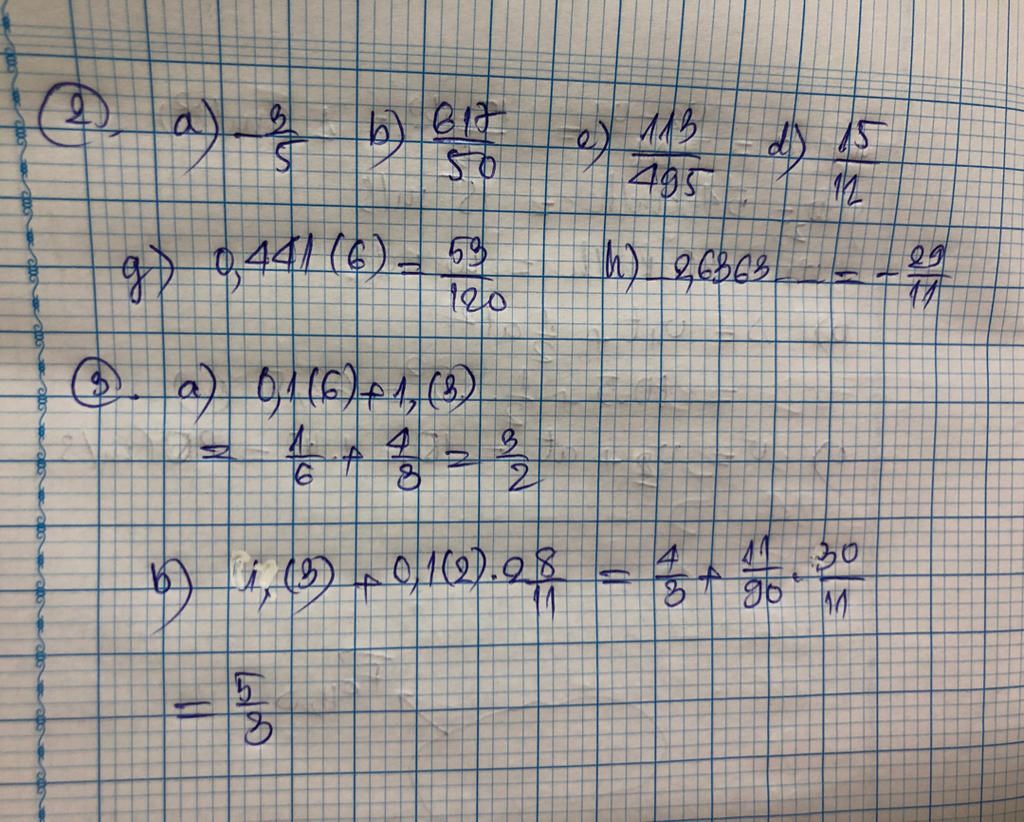 2. a) -3/5 b) 617/50 c) 113/495 d) 15/12
g) 0,441(6) = 53/120 h) -2,6363... = -29/11
3. a) 0,1(6) + 1,(3)
= 1/6 + 4/3 = 3/2
b) 1,(3) + 0,1(2) · 2 8/11 = 4/3 + 11/90 · 30/11
= 5/3